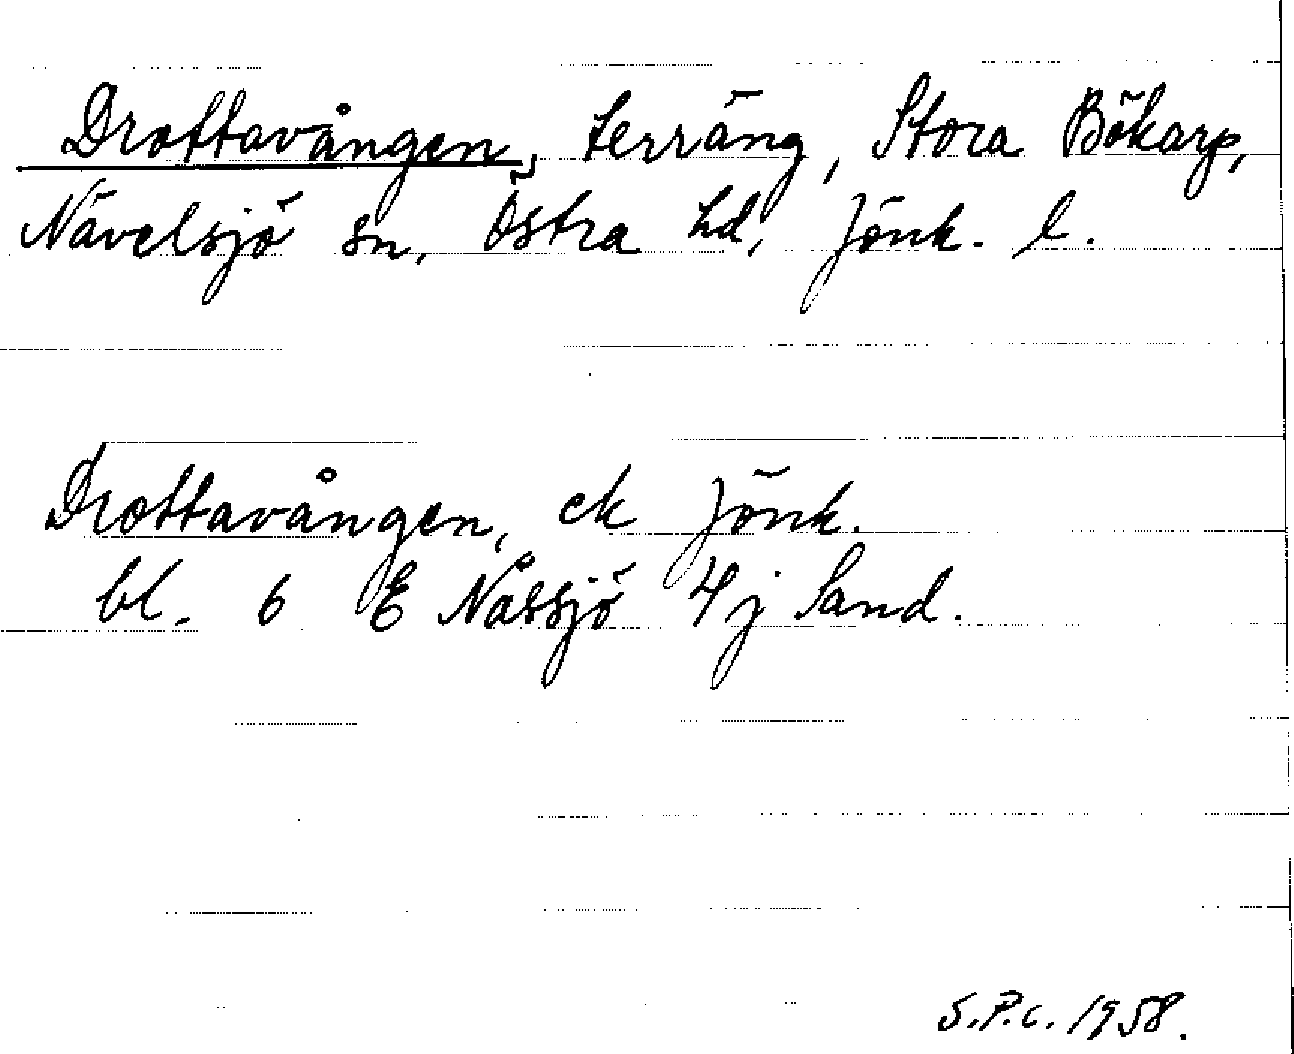 Drottavången, terräng, Stora Bökarp,
Nävelsjö sn, Östra hd, Jönk. l.
Drottavången, ek Jönk.
bl. 6 E Nässjö 4j Sand.
S.P.C. 1958.